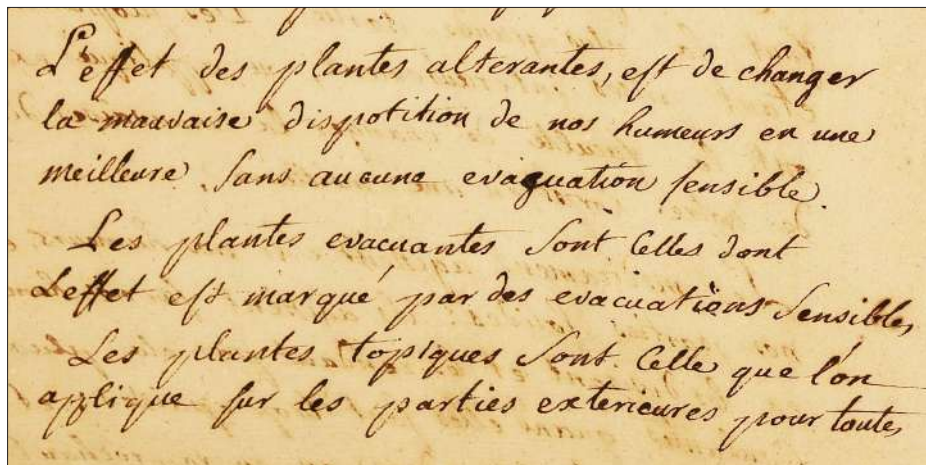 L'effet des plantes alterantes, est de changer
la mauvaise dispotition de nos humeurs en une
meilleure sans aucune evaquation sensible.
Les plantes evacuantes sont Celles dont
L'effet est marqué par des evacuations sensibles,
Les plantes topiques sont Celle que l'on
applique sur les parties exterieures pour toutes